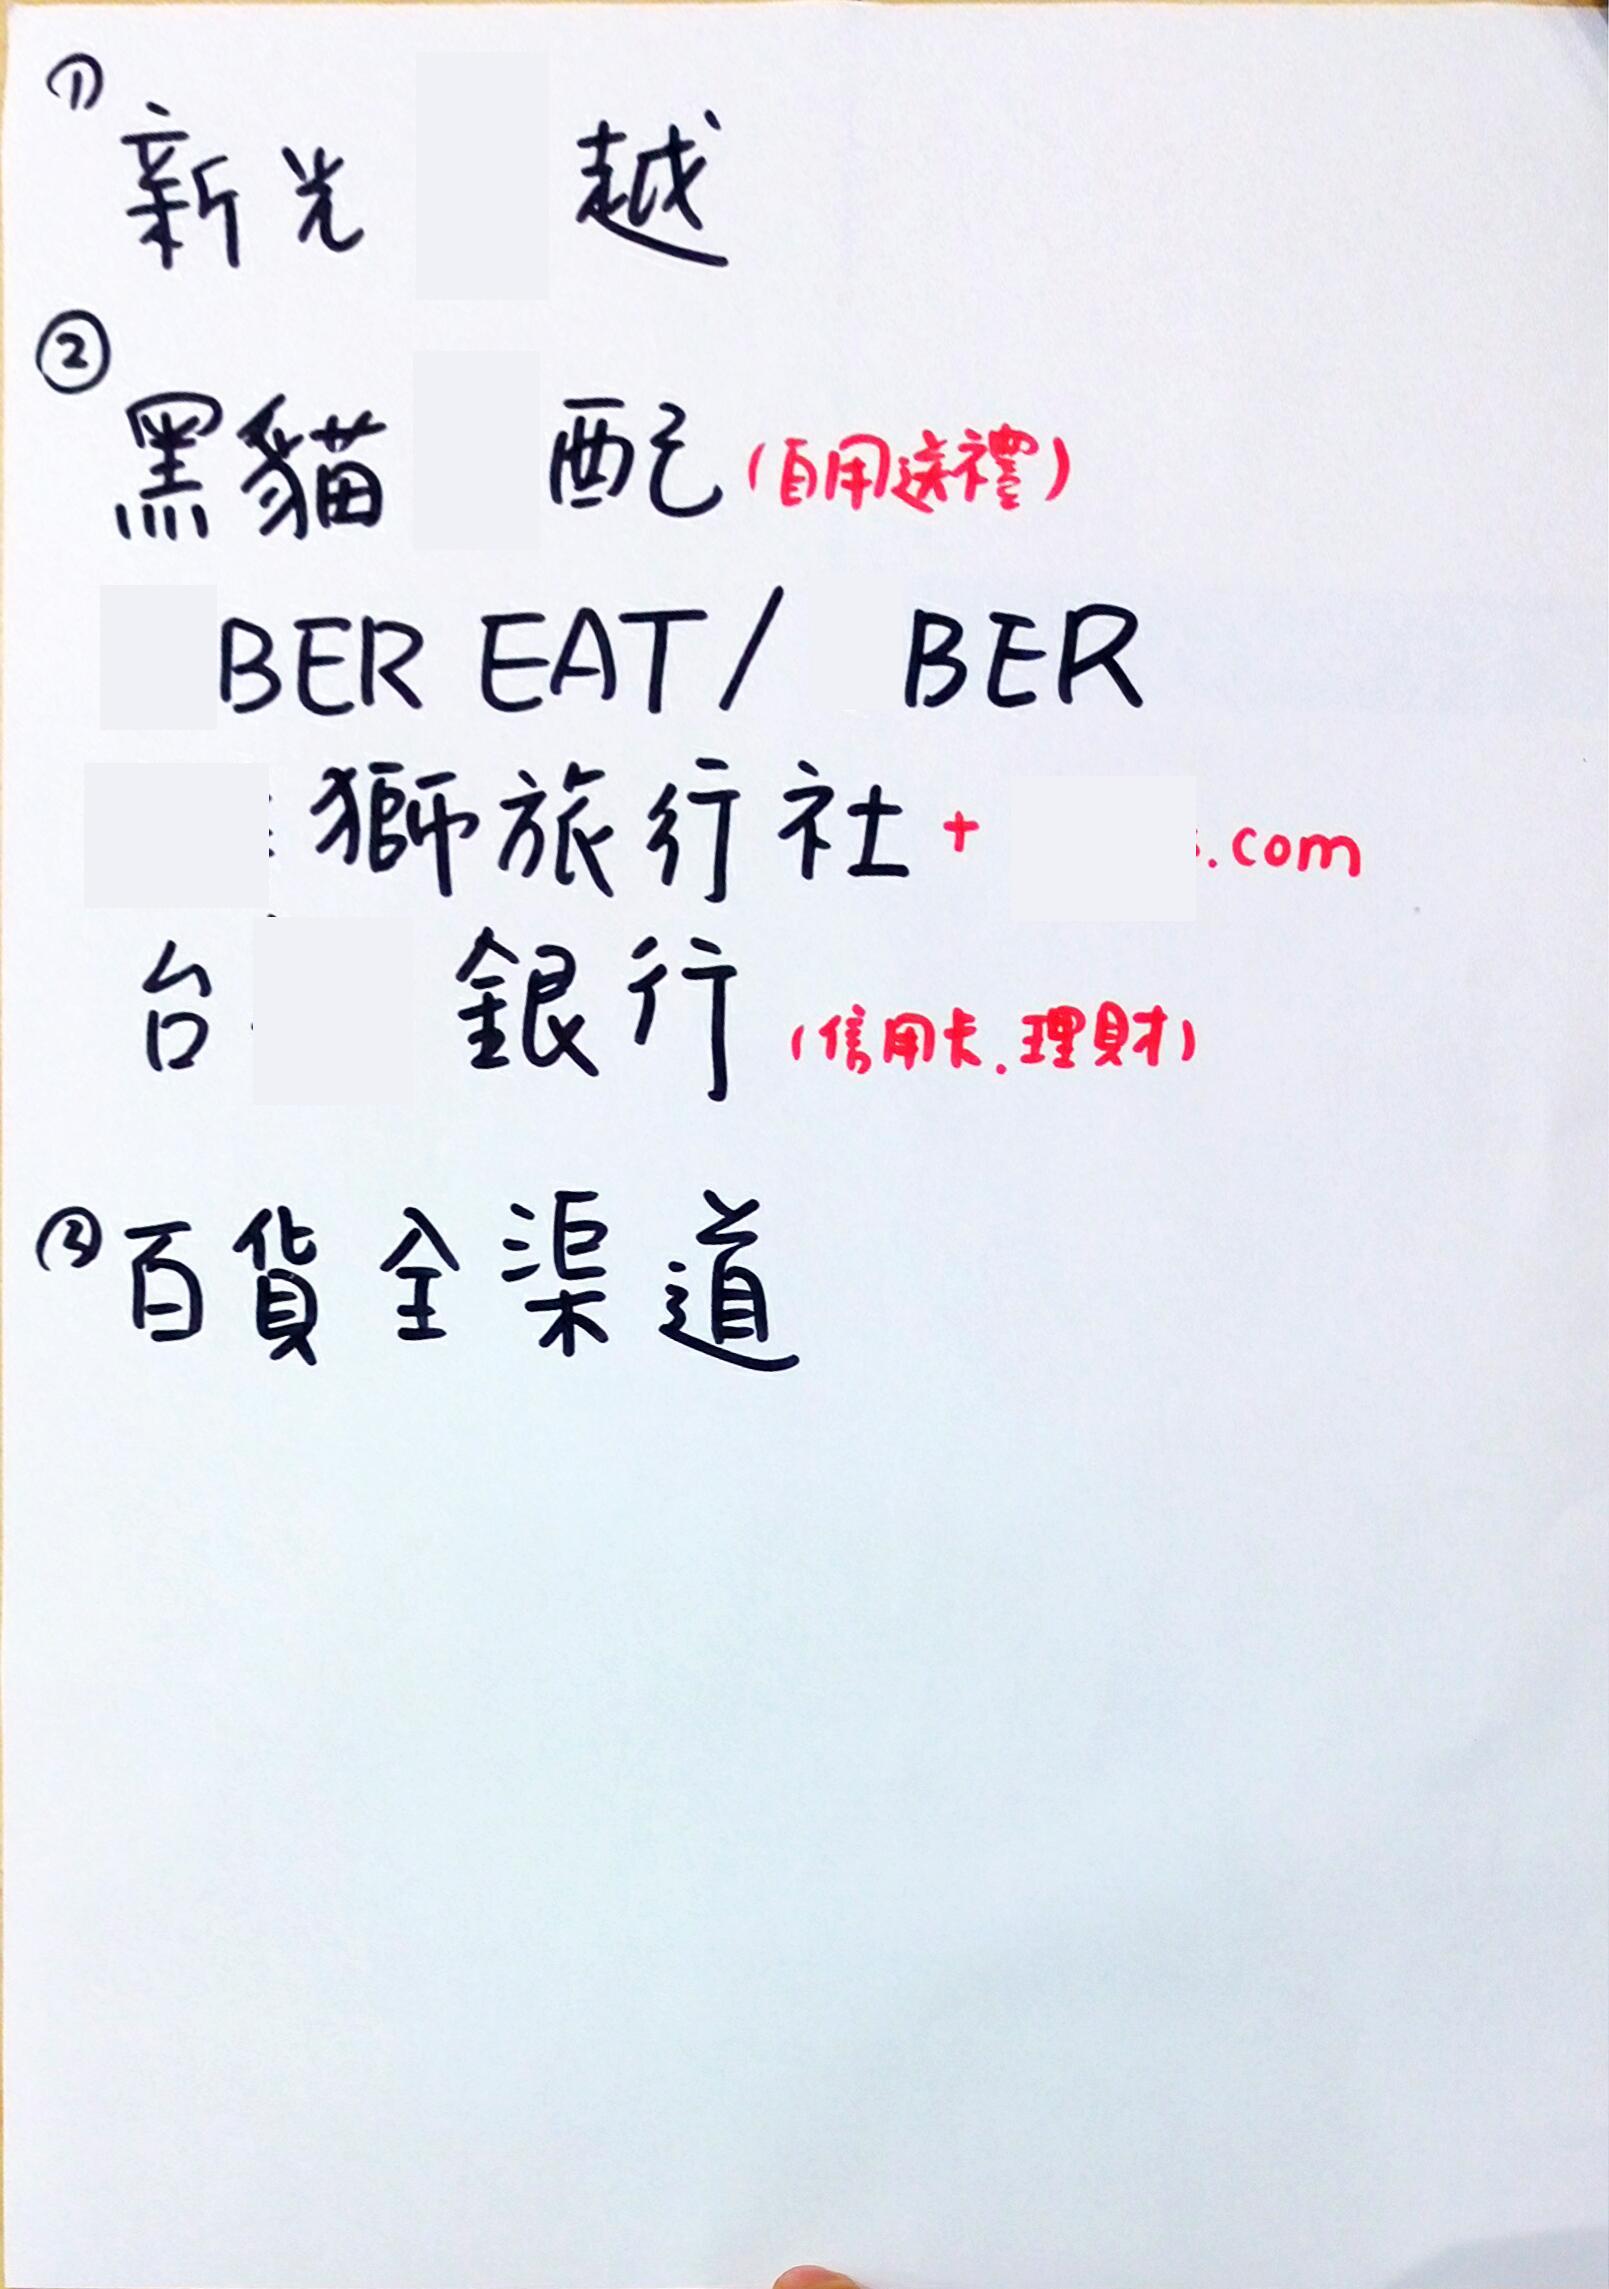 ①
新光 越
②
黑貓 配(自用送禮)
BER EAT/ BER
獅旅行社+ .com
台 銀行(信用卡.理財)
③百貨全渠道